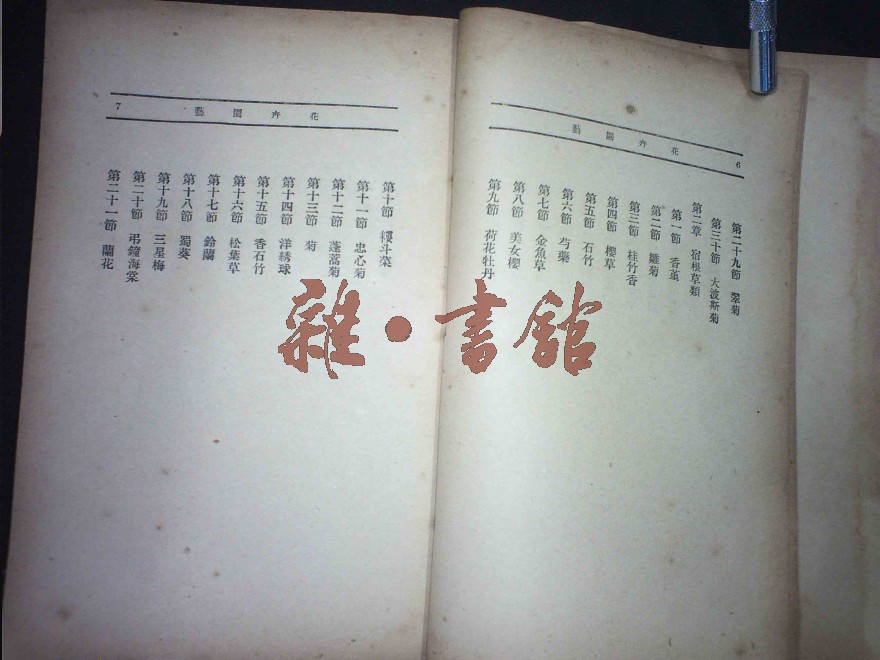 花卉園藝 6
第二十九節 翠菊
第三十節 大波斯菊
第二章 宿根草類
第一節 香堇
第二節 雛菊
第三節 桂竹香
第四節 櫻草
第五節 石竹
第六節 芍藥
第七節 金魚草
第八節 美女櫻
第九節 荷花牡丹
花卉園藝 7
第十節 耬斗菜
第十一節 忠心菊
第十二節 蓬蒿菊
第十三節 菊
第十四節 洋綉球
第十五節 香石竹
第十六節 松葉草
第十七節 鈴蘭
第十八節 蜀葵
第十九節 三星梅
第二十節 弔鐘海棠
第二十一節 蘭花
雜·書館